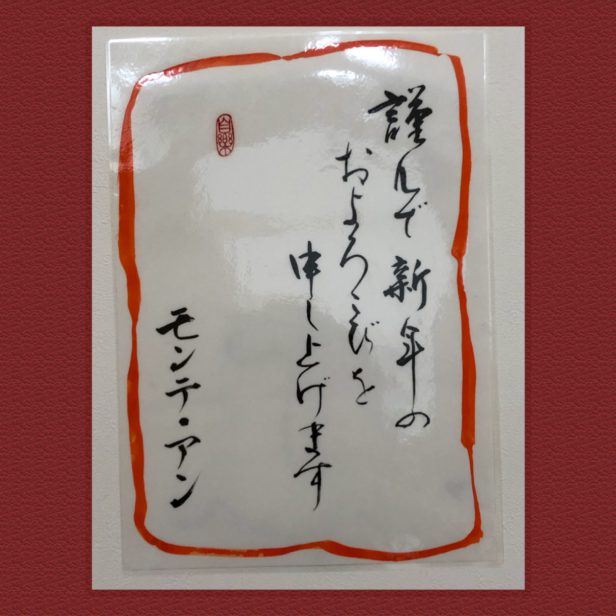 謹んで新年の
およろこびを
申し上げます
モンテ・アン